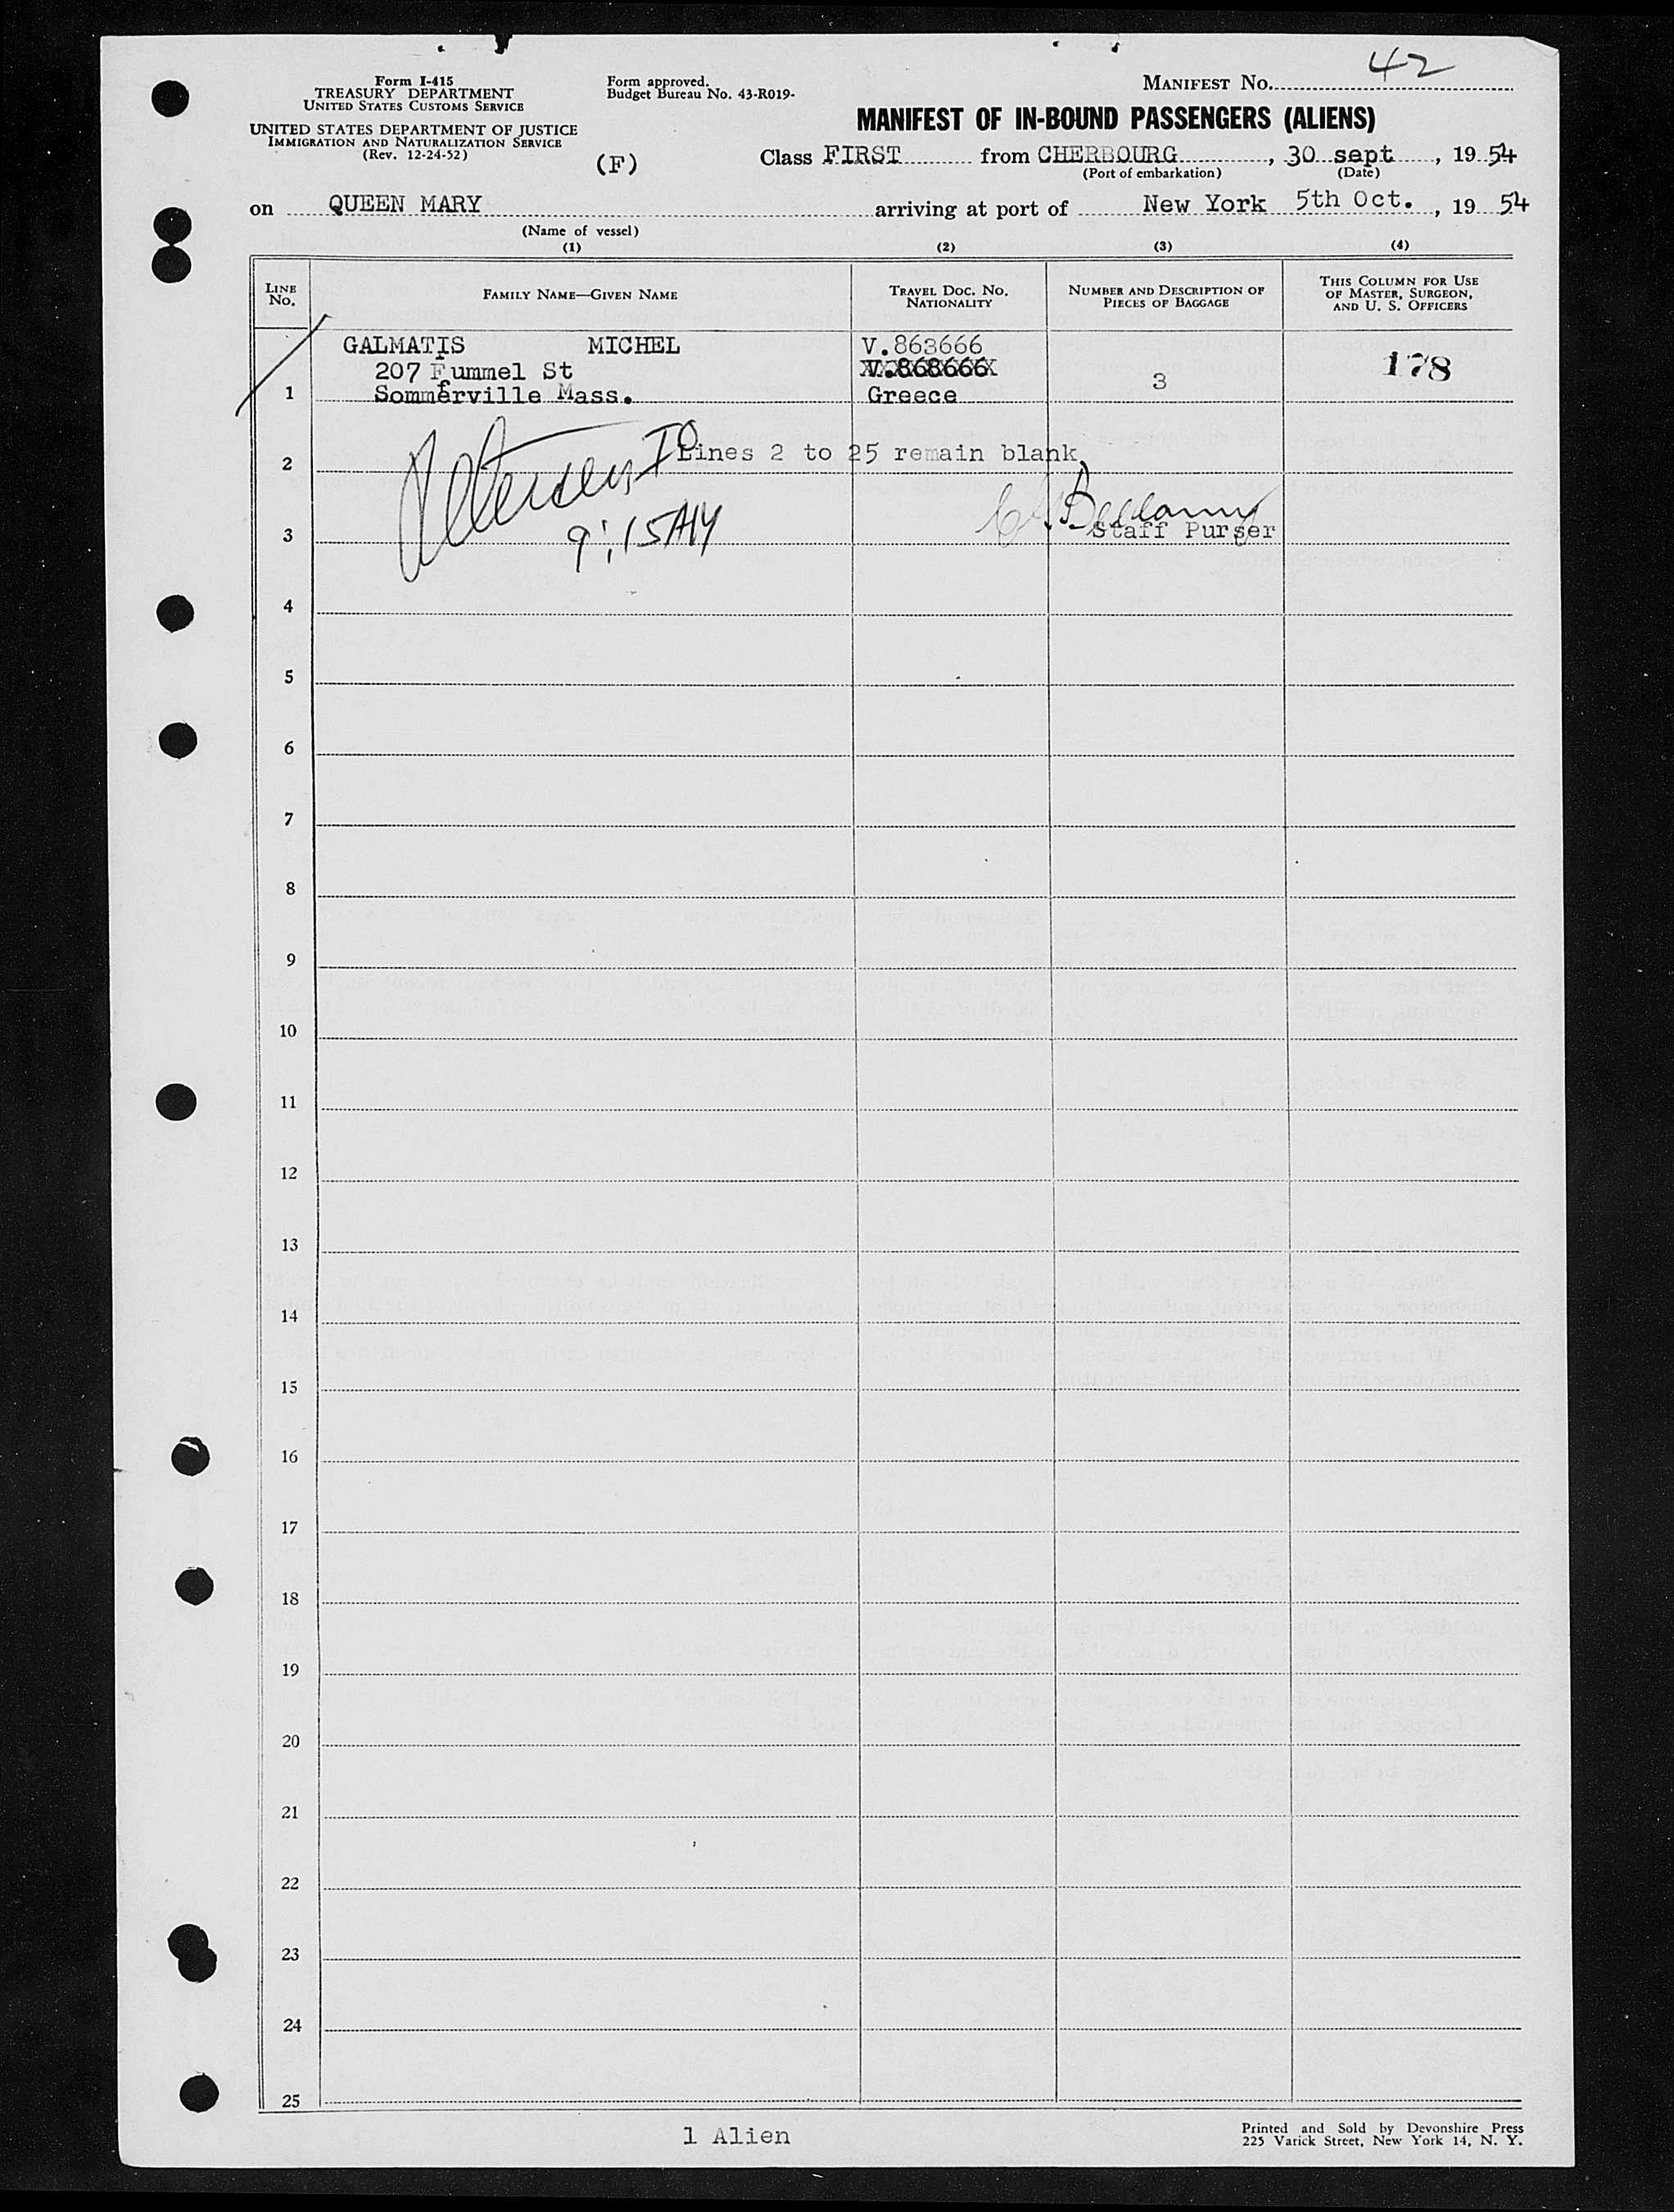 42
Form I-415
TREASURY DEPARTMENT
UNITED STATES CUSTOMS SERVICE
UNITED STATES DEPARTMENT OF JUSTICE
IMMIGRATION AND NATURALIZATION SERVICE
(Rev. 12-24-52)
Form approved.
Budget Bureau No. 43-R019-
(F)
MANIFEST No.
MANIFEST OF IN-BOUND PASSENGERS (ALIENS)
Class FIRST from CHERBOURG, 30 sept, 19 54
(Port of embarkation) (Date)
on QUEEN MARY arriving at port of New York 5th Oct., 19 54
(Name of vessel)
(1) (2) (3) (4)
LINE No.
FAMILY NAME—GIVEN NAME
TRAVEL DOC. No. NATIONALITY
NUMBER AND DESCRIPTION OF PIECES OF BAGGAGE
THIS COLUMN FOR USE OF MASTER, SURGEON, AND U. S. OFFICERS
GALMATIS MICHEL V.863666
207 Fummel St V.868666 178
1 Sommerville Mass. Greece 3
Lines 2 to 25 remain blank
2
9:15AM
3 Staff Purser
4
5
6
7
8
9
10
11
12
13
14
15
16
17
18
19
20
21
22
23
24
25
1 Alien
Printed and Sold by Devonshire Press
225 Varick Street, New York 14, N. Y.